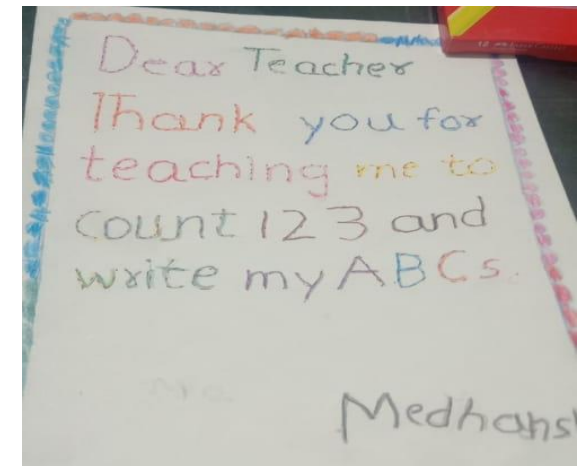 Dear Teacher
Thank you for
teaching me to
count 123 and
write my ABCs.
Medhans